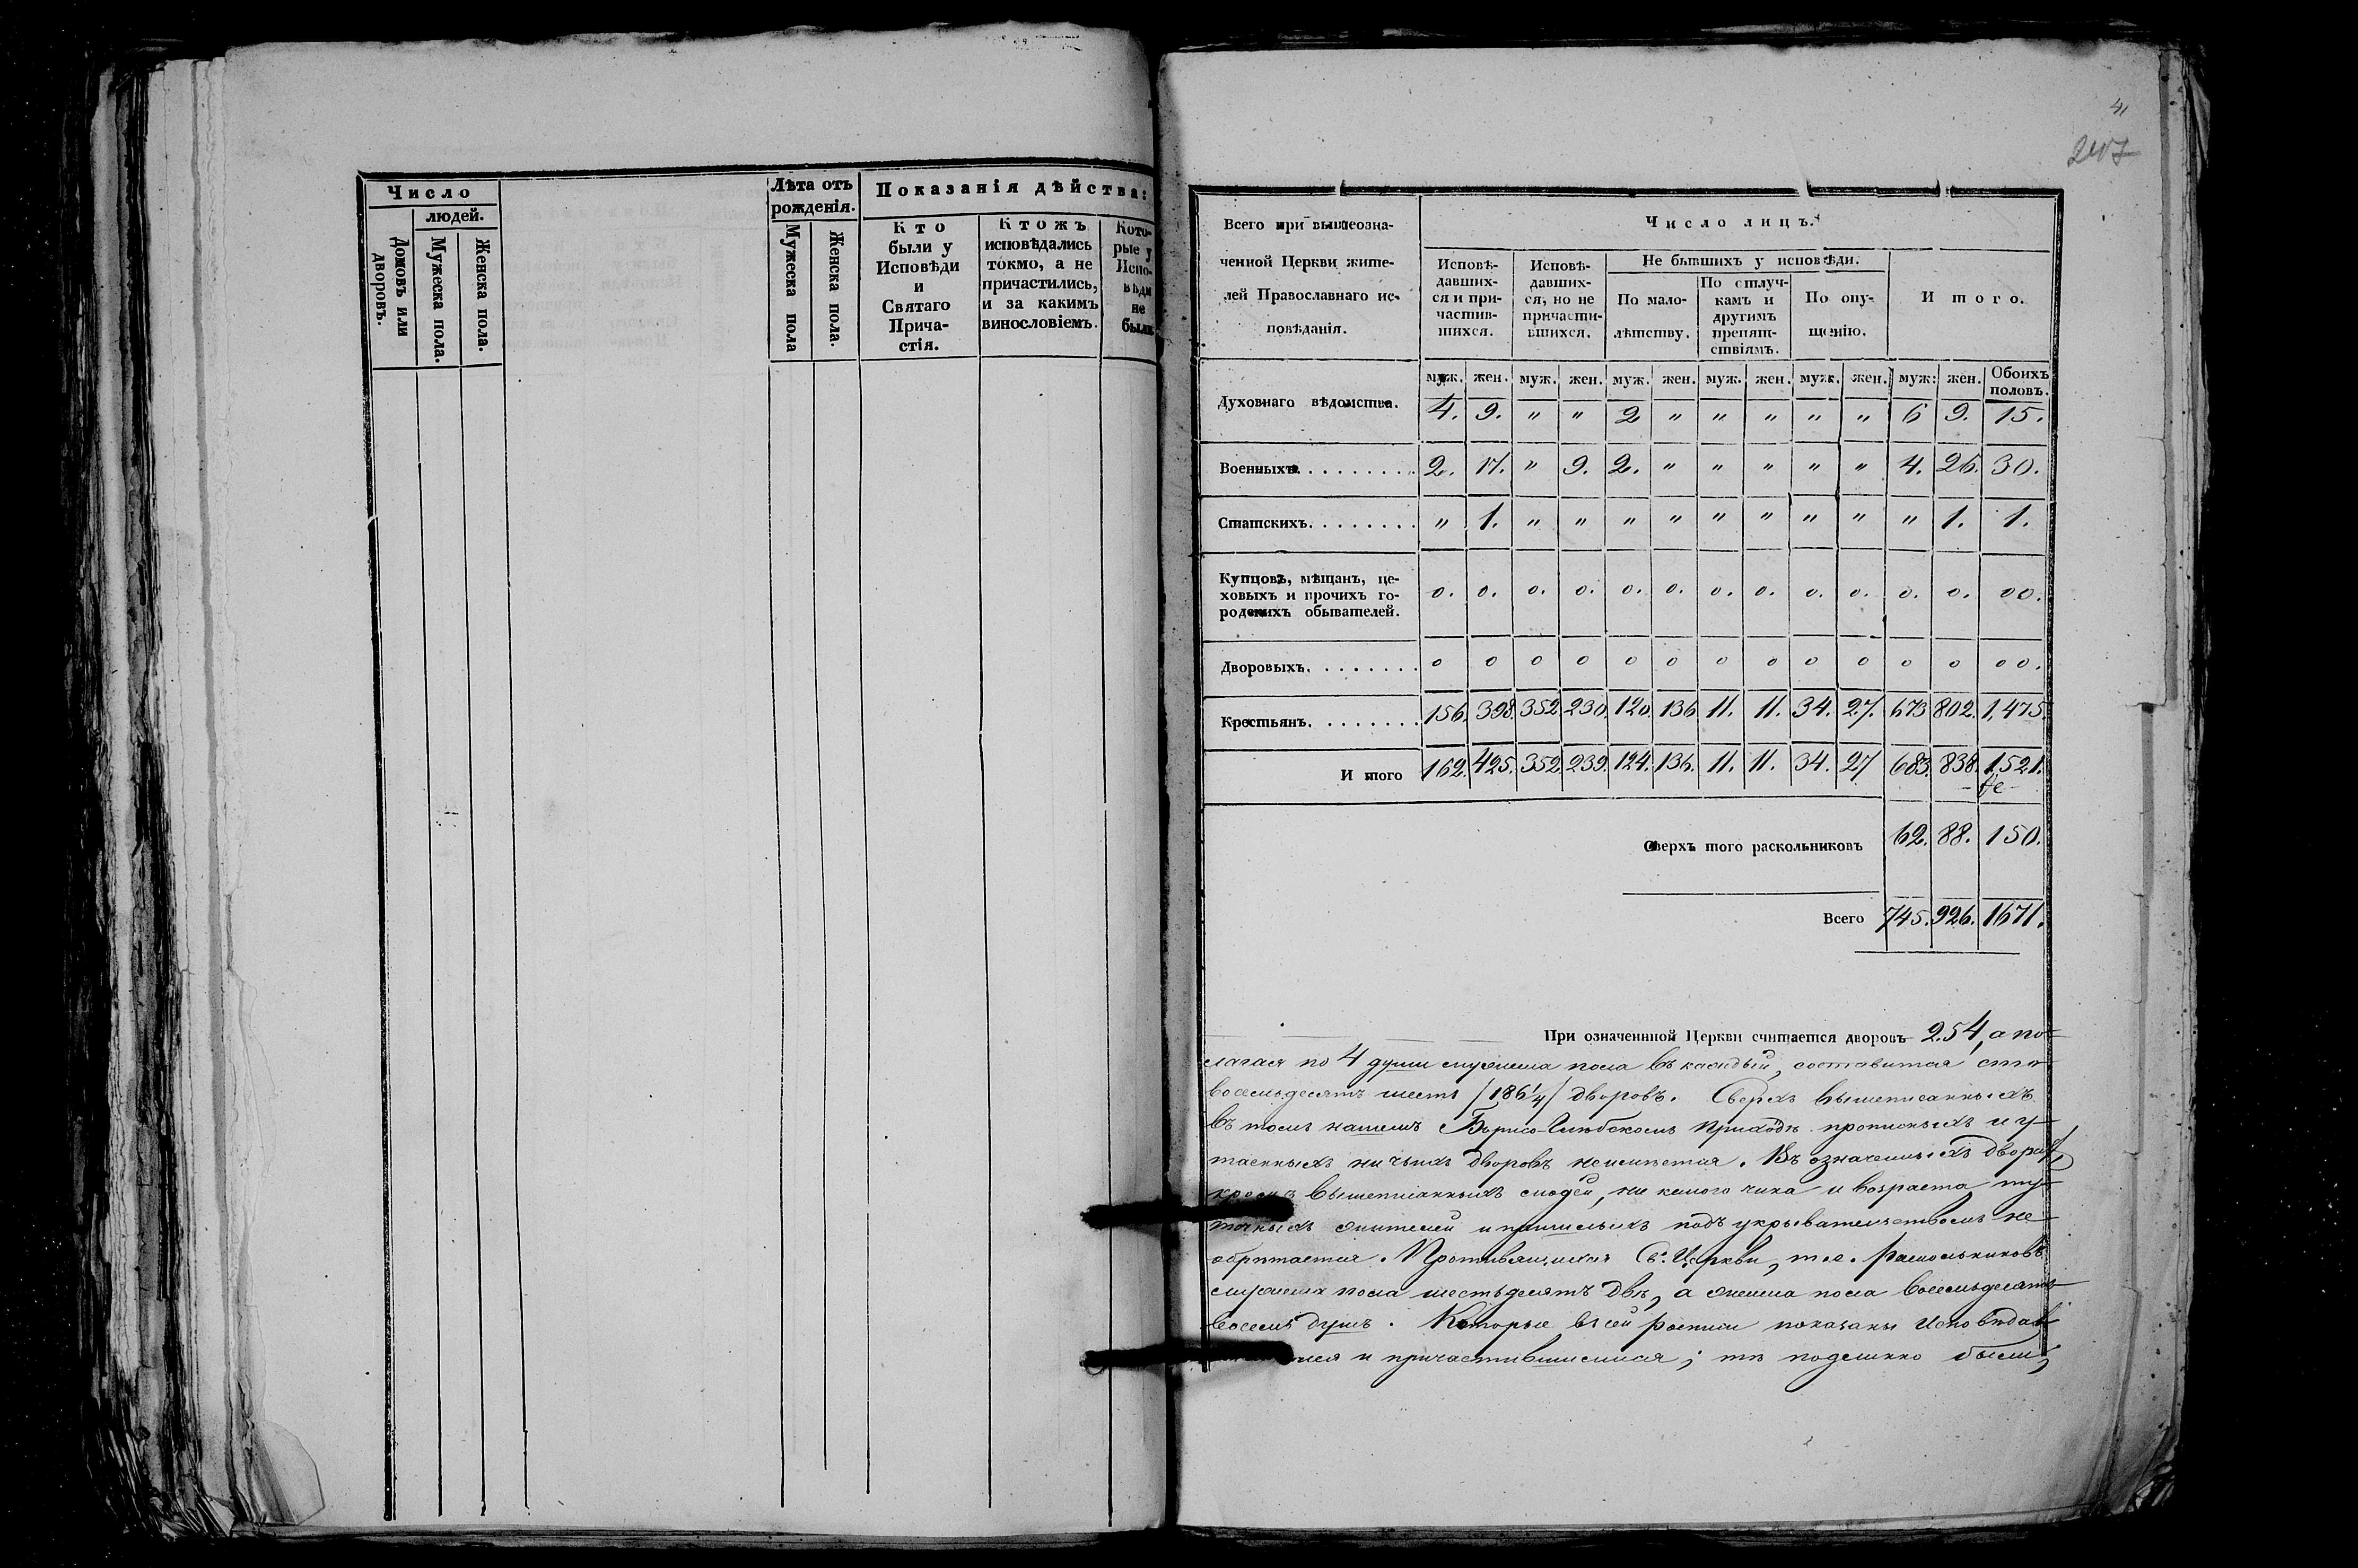 Число
людей.
Домовъ или дворовъ.
Мужеска пола.
Женска пола.
Лѣта отъ
рожденія.
Мужеска пола
Женска пола.
Показанія дѣйства:
Кто
были у
Исповѣди
и
Святаго
Прича-
стія.
Ктожъ
исповѣдались
токмо, а не
причастились,
и за какимъ
винословіемъ.
Кото-
рые у
Испо-
вѣди
не
были
4
207
Всего при вышеозна-
ченной Церкви жите-
лей Православнаго ис-
повѣданія.
Число лицъ.
Исповѣ-
давших-
ся и при-
частив-
шихся.
Исповѣ-
давших-
ся, но не
причасти-
вшихся.
Не бывшихъ у исповѣди.
По мало-
лѣтству.
По отлуч-
камъ и
другимъ
препят-
ствіямъ.
По опу-
щенію.
И того.
муж. жен. муж. жен. муж. жен. муж. жен. муж. жен. муж. жен. Обоихъ половъ.
Духовнаго вѣдомства. 4. 9. " " 2 " " " " " 6 9. 15.
Военныхъ. 2. 17. " 9. 2. " " " " " 4. 26. 30.
Статскихъ. " 1. " " " " " " " " " 1. 1.
Купцовъ, мѣщанъ, це-
ховыхъ и прочихъ го-
родскихъ обывателей. 0. 0. 0. 0. 0. 0. 0. 0. 0. 0. 0. 0. 00.
Дворовыхъ. 0 0 0 0 0 0 0 0 0 0 0 0 00.
Крестьянъ. 156. 398. 352. 230. 120. 136 11. 11. 34. 27. 673 802. 1,475.
И того 162. 425. 352. 239. 124. 136. 11. 11. 34. 27 683. 838. 1,521.
Сверхъ того раскольниковъ 62. 88. 150.
Всего 745. 926. 1671.
При означенной Церкви считается дворовъ 254, а по-
лагая по 4 души мужеска пола въ каждый, составится сто
восемьдесятъ шесть /186 1/4/ дворовъ. Сверхъ вышеписанныхъ
въ томъ нашемъ Борисо-Глѣбскомъ приходѣ прописныхъ и у-
таенныхъ ничьихъ дворовъ неимѣется. Въ означенныхъ дворахъ,
кромѣ вышеписанныхъ людей, ни какого чина и возраста ту-
точныхъ жителей и пришлыхъ подъ укрывательствомъ не
обрѣтается. Противящихся Св. Церкви, т.е. раскольниковъ
мужеска пола шестьдесятъ двѣ, а женска пола восемьдесятъ
восемь душъ. Которые в сей росписи показаны исповѣдав
мися и причастившимися; тѣ подлинно были,